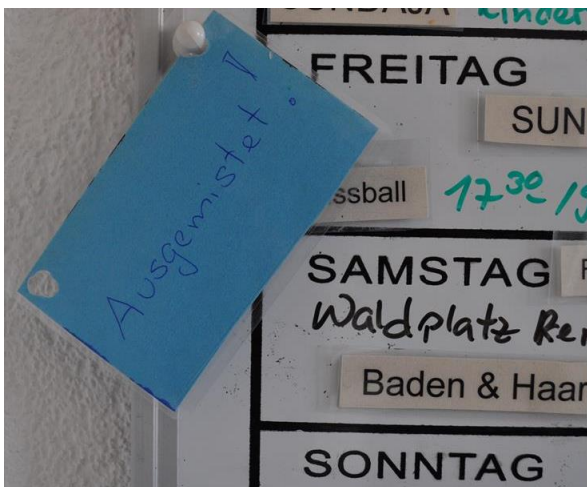 Ausgemistet!
FREITAG
SUN
ssball 17³⁰
SAMSTAG
Waldplatz
Baden & Haar
SONNTAG